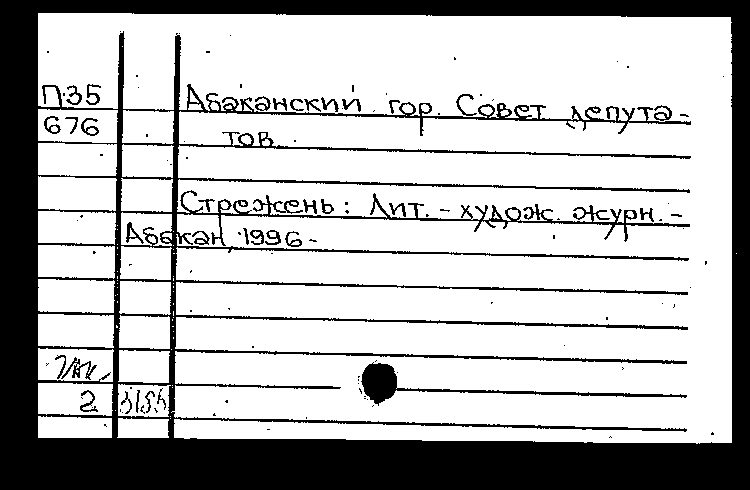 П35 Абаканский гор. Совет депута-
676 тов.
Стрежень: Лит. - худож. журн. -
Абакан, 1996 -
2